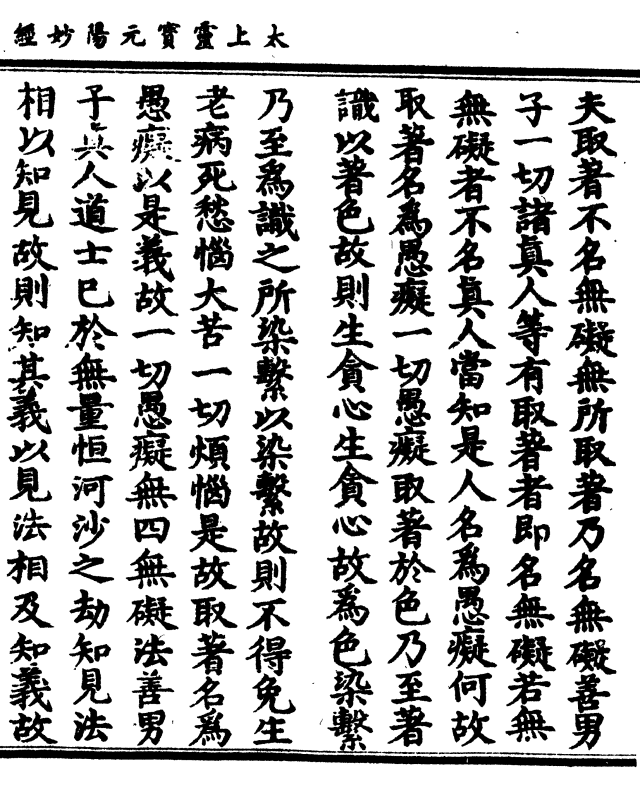 太上靈寶元陽妙經
夫取著不名無礙無所取著乃名無礙善男
子一切諸眞人等有取著者即名無礙若無
無礙者不名眞人當知是人名爲愚癡何故
取著名爲愚癡一切愚癡取著於色乃至著
識以著色故則生貪心生貪心故爲色染繫
乃至爲識之所染繫以染繫故則不得免生
老病死愁惱大苦一切煩惱是故取著名爲
愚癡以是義故一切愚癡無四無礙法善男
子眞人道士已於無量恒河沙之劫知見法
相以知見故則知其義以見法相及知義故